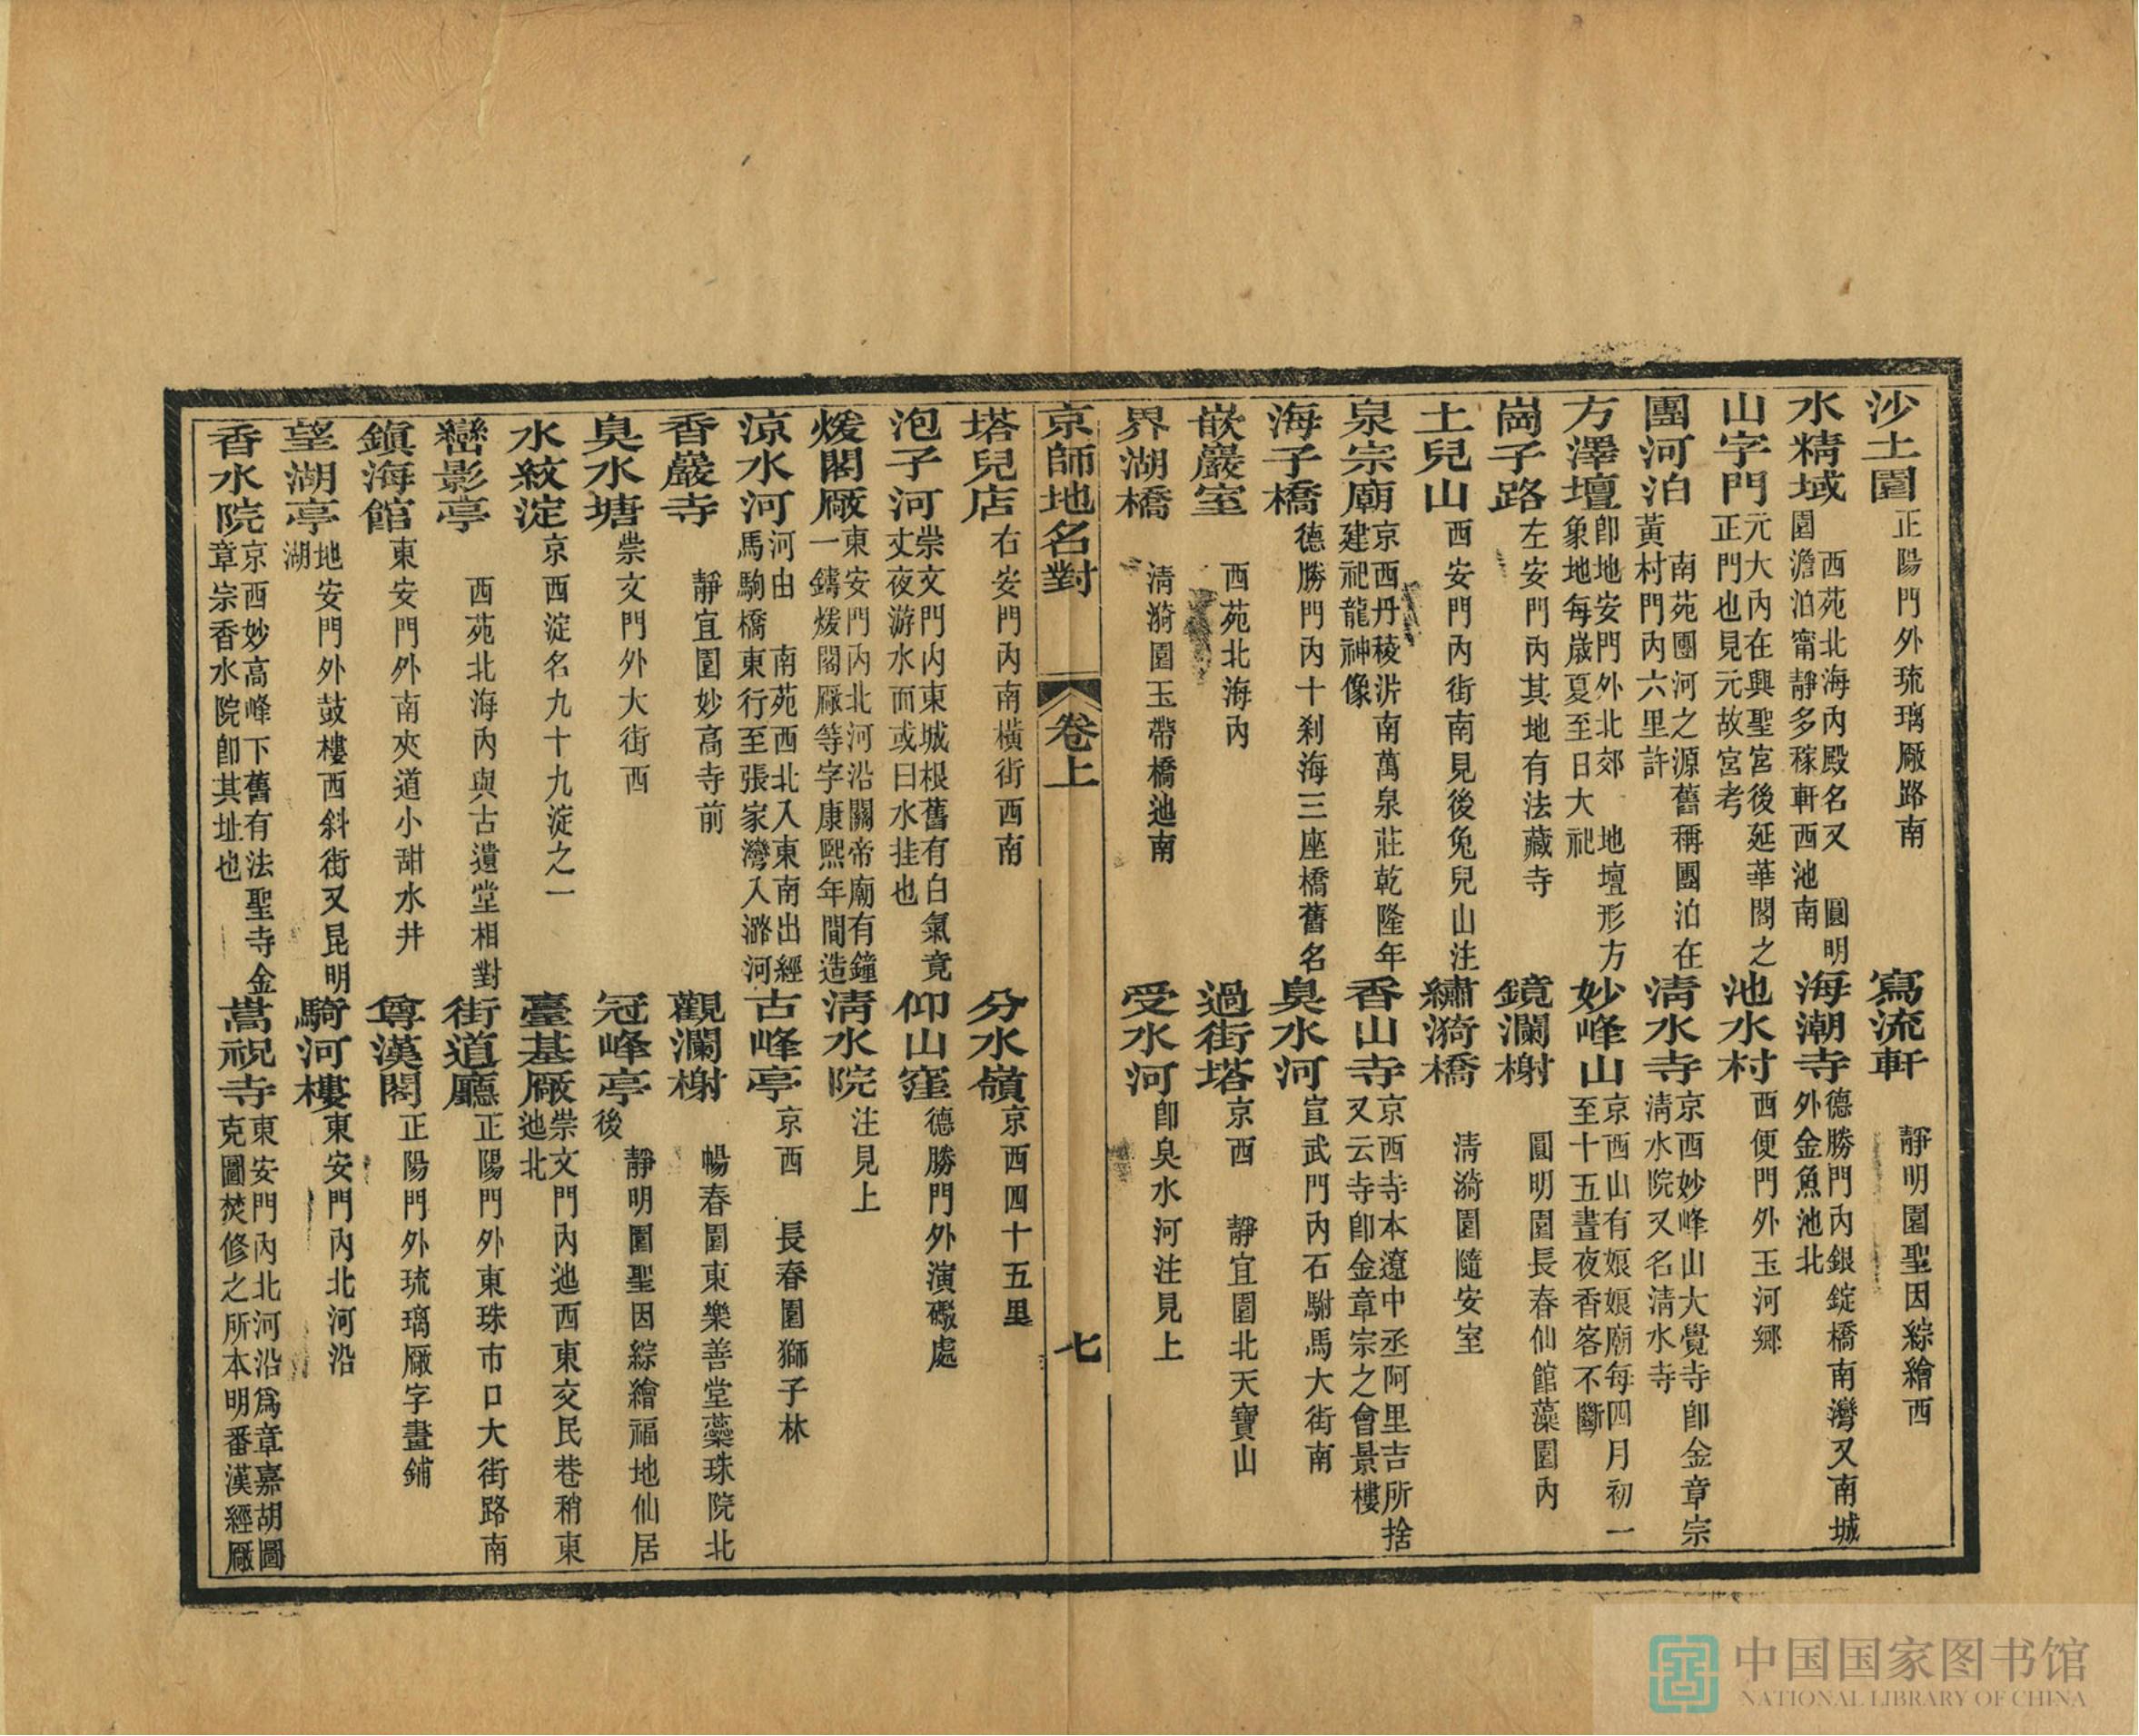 沙土園正陽門外琉璃厰路南　寫流軒靜明園聖因綜繪西
水精域西苑北海內殿名又圓明園澹泊甯靜多稼軒西池南　海潮寺德勝門內銀錠橋南灣又南城外金魚池北
山字門元大內在興聖宮後延華閣之正門也見元故宮考　池水村西便門外玉河鄉
團河泊南苑團河之源舊稱團泊在黃村門內六里許　清水寺京西妙峰山大覺寺卽金章宗清水院又名清水寺
方澤壇卽地安門外北郊地壇形方象地每歲夏至日大祀　妙峰山京西山有娘娘廟每四月初一至十五晝夜香客不斷
崗子路左安門內其地有法藏寺　鏡瀾榭圓明園長春仙館藻園內
土兒山西安門內街南見後兔兒山注　繡漪橋清漪園隨安室
泉宗廟京西丹稜沜南萬泉莊乾隆年建祀龍神像　香山寺京西寺本遼中丞阿里吉所捨又云寺卽金章宗之會景樓
海子橋德勝門內十刹海三座橋舊名　臭水河宣武門內石駙馬大街南
嵌巖室西苑北海內　過街塔京西靜宜園北天寶山
界湖橋清漪園玉帶橋迆南　受水河卽臭水河注見上
京師地名對　卷上　七
塔兒店右安門內南橫街西南　分水嶺京西四十五里
泡子河崇文門內東城根舊有白氣竟丈夜游水面或曰水挂也　仰山窪德勝門外演礮處
煖閣厰東安門內北河沿關帝廟有鐘一鑄煖閣厰等字康熙年間造　清水院注見上
涼水河河由南苑西北入東南出經馬駒橋東行至張家灣入潞河　古峰亭京西長春園獅子林
香巖寺靜宜園妙高寺前　觀瀾榭暢春園東樂善堂蘂珠院北
臭水塘崇文門外大街西　冠峰亭靜明園聖因綜繪福地仙居後
水紋淀京西淀名九十九淀之一　臺基厰崇文門內迆西東交民巷稍東迆北
巒影亭西苑北海內與古遺堂相對　街道廳正陽門外東珠市口大街路南
鎮海館東安門外南夾道小甜水井　尊漢閣正陽門外琉璃厰字畫鋪
望湖亭地安門外鼓樓西斜街又昆明湖　騎河樓東安門內北河沿
香水院京西妙高峰下舊有法聖寺金章宗香水院卽其址也　嵩祝寺東安門內北河沿爲章嘉胡圖克圖焚修之所本明番漢經厰
中国国家图书馆
NATIONAL LIBRARY OF CHINA